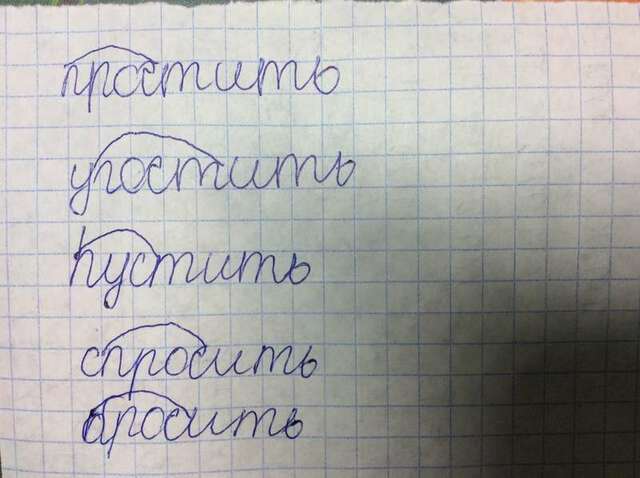 простить
угостить
пустить
спросить
бросить